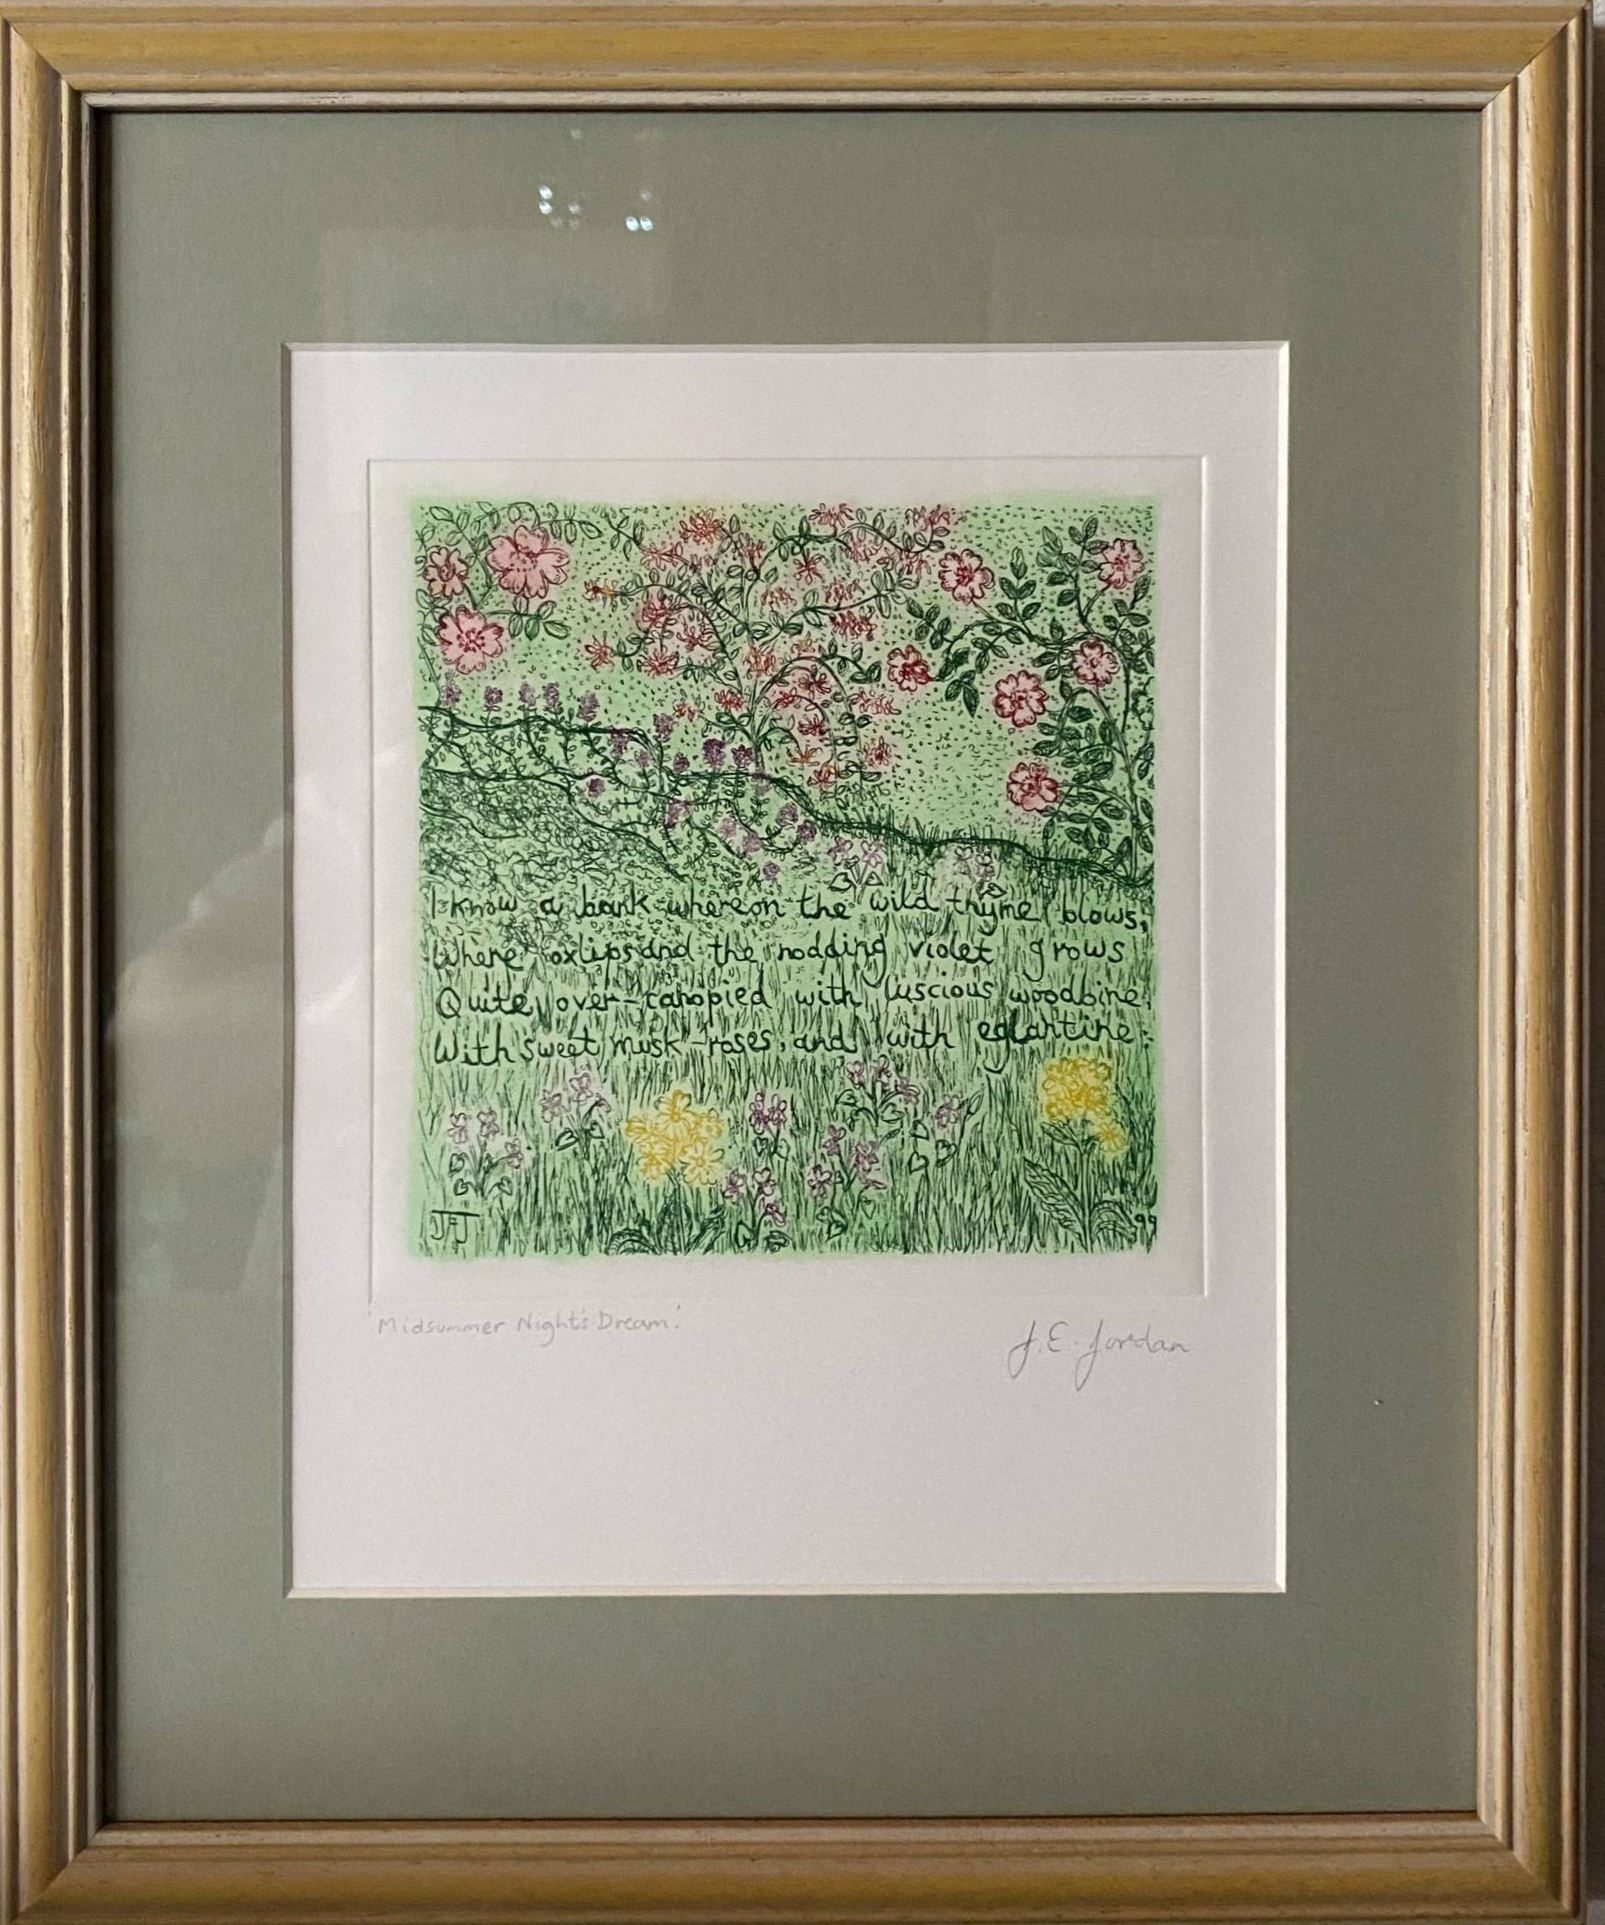 I know a bank whereon the wild thyme blows,
Where oxlips and the nodding violet grows
Quite over-canopied with luscious woodbine,
With sweet musk-roses, and with eglantine:
JEJ
99
'Midsummer Night's Dream.'
J.E. Jordan